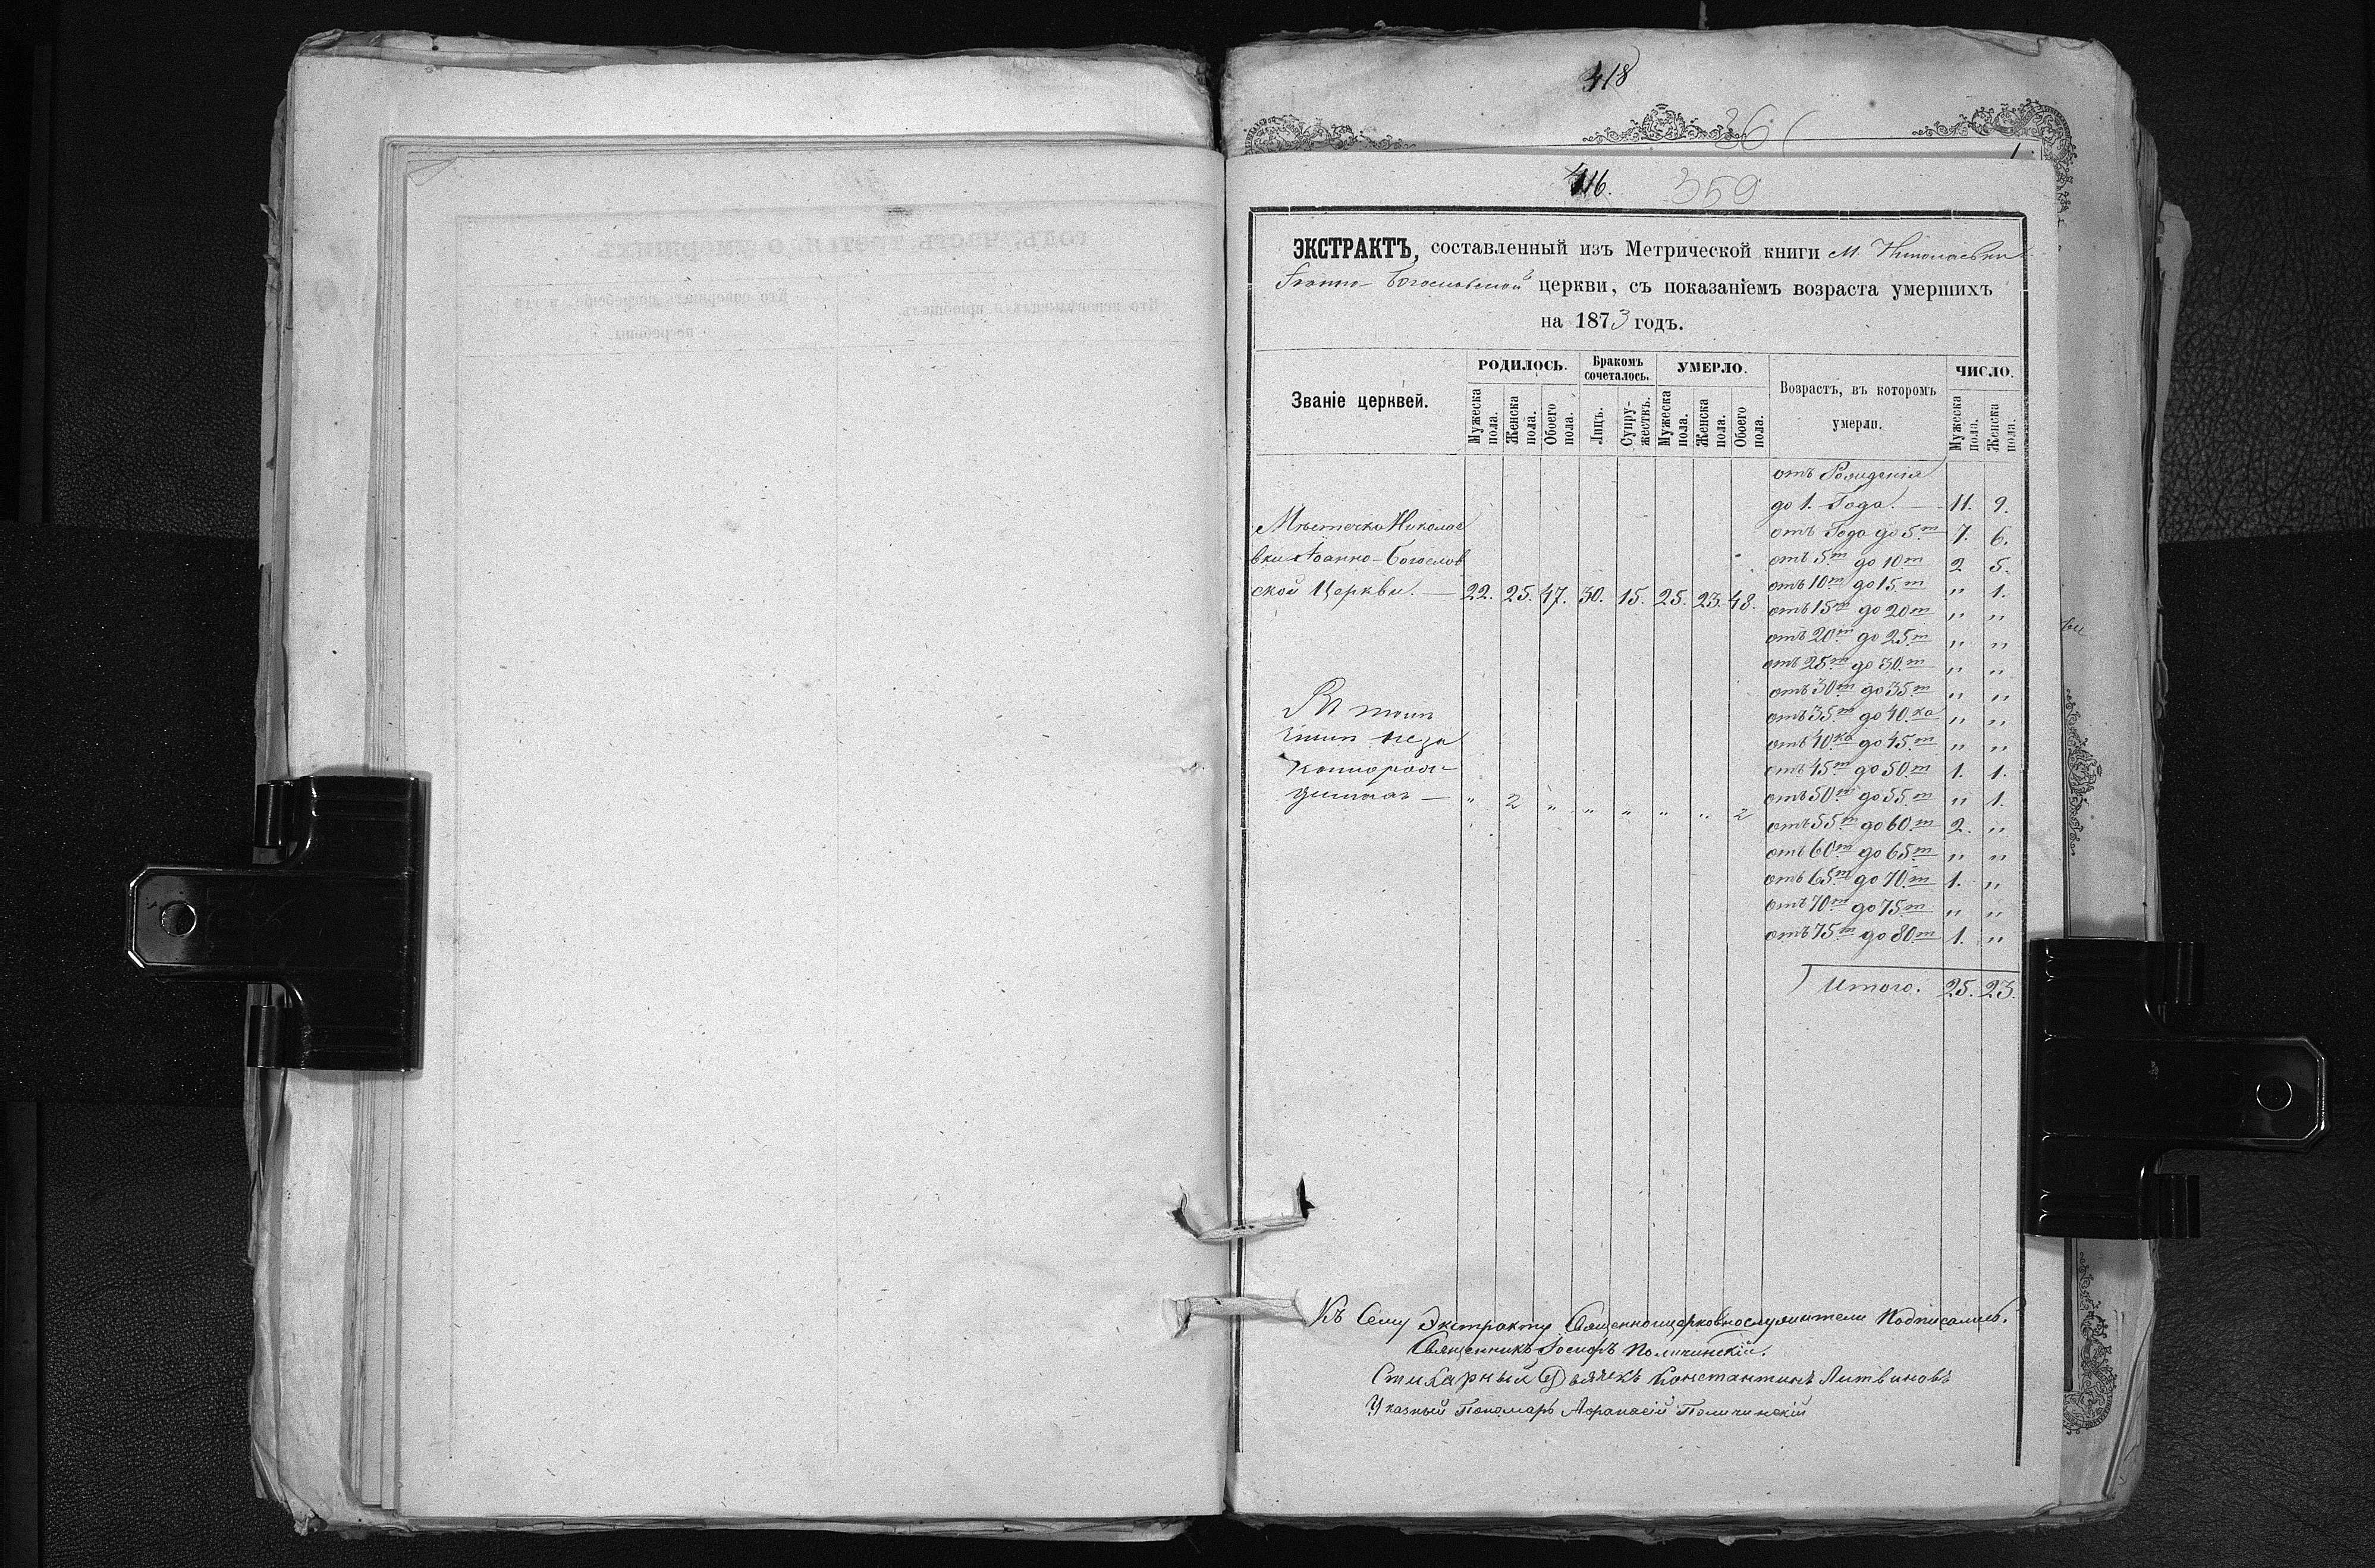 418
36
416. 359
ЭКСТРАКТЪ, составленный изъ Метрической книги М. Николаевки
Іоанно-Богословской церкви, съ показаніемъ возраста умершихъ
на 1873 годъ.
Званіе церквей.
РОДИЛОСЬ.
Мужеска пола.
Женска пола.
Обоего пола.
Бракомъ сочеталось.
Лицъ.
Супружествъ.
УМЕРЛО.
Мужеска пола.
Женска пола.
Обоего пола.
Возрастъ, въ которомъ
умерли.
ЧИСЛО.
Мужеска пола.
Женска пола.
Мѣстечка Николае
вки Іоанно-Богослов
ской Церкви. — 22. 25. 47. 30. 15. 25. 23. 48.
Въ томъ
числѣ неза
коннорож-
— „ 2 „ „ „ „ „ 2
отъ Рожденія
до 1. Года. — 11. 9.
отъ Года до 5.т 7. 6.
отъ 5.т до 10.т 2 5.
отъ 10.т до 15.т „ 1.
отъ 15.т до 20.т „ „
отъ 20.т до 25.т „ „
отъ 25.т до 30.т „ „
отъ 30.т до 35.т „ „
отъ 35.т до 40.ка „ „
отъ 40.ка до 45.т „ „
отъ 45.т до 50.т 1. 1.
отъ 50.т до 55.т „ 1.
отъ 55.т до 60.т 2. „
отъ 60.т до 65.т „ „
отъ 65.т до 70.т 1. „
отъ 70.т до 75.т „ „
отъ 75.т до 80.т 1. „
Итого. 25. 23.
Къ Сему Экстракту Священноцерковнослужители Подписались.
Священникъ Іосифъ Поличинскій.
Стихарный Дьячекъ Константинъ Литвиновъ
Указный Пономарь Афанасій Поличинскій